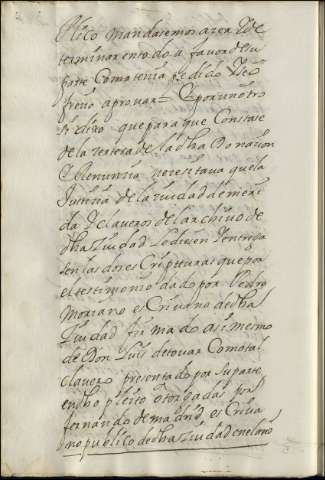 Pleito mandasemos acer L de
terminar en todo a favor de su
parte Como tenia pedido Y se
freçio aprovar = E por un otro
si dixo que para que Constase
de la çerteza de la dha Donaçion
E Renunzia neçesitava que la
Justiçia de la ziudad de meri
da Y claveros del archivo de
dha ziudad Pudiesen Y entrega
sen las dos escripturas que por
el testimonio dado por Pedro
Moriano escrivano de dha
Ziudad firmado asi mesmo
de Don Luis de tovar Como tal
clavero presentado por su parte
en dho pleito otorgadas por
fernando de madrid escriva
no publico de dha ziudad en el año